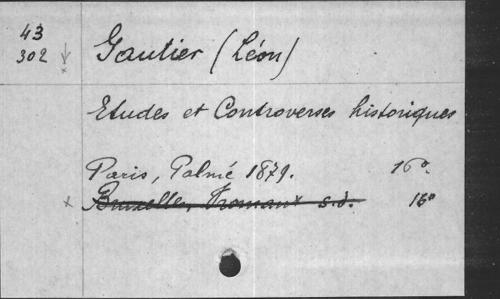 43
302
Gautier (Léon)
Etudes et Controverses historiques
Paris, Palmé 1879. 16°.
x Bruxelle, Fromant s.d. 16°